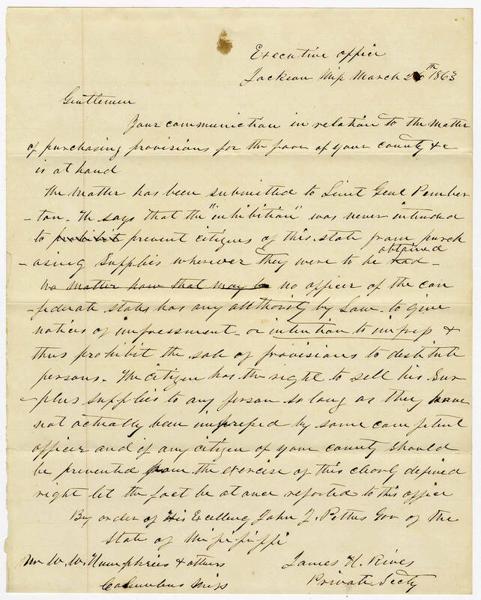 Executive office
Jackson Mip March 26th 1863
Gentlemen
Your communiction in relation to the matter
of purchasing provisions for the poor of your county &c
is at hand
The matter has been submitted to Lieut Genl Pember-
-ton. He says that the "inhibition" was never intended
to prohibit prevent citizens of this state from purch
-asing supplies wherever they were to be had obtained
-No matter how that may be no officer of the con
-federate states has any authority by Law to give
notices of impressment or intention to impress &
thus prohibit the sale of provisions to destitute
persons. The citizen has the right to sell his Sur-
-plus supplies to any person so long as they have
not actually been impressed by some competent
officer and if any citizen of your county should
be prevented from the exercise of this clearly defined
right let the fact be at once reported to this office
By order of His Excellency John J. Pettus Gov of the
State of Mississippi
Mr W. W. Humphries & others
James H. Rives
Columbus Miss
Private Secty